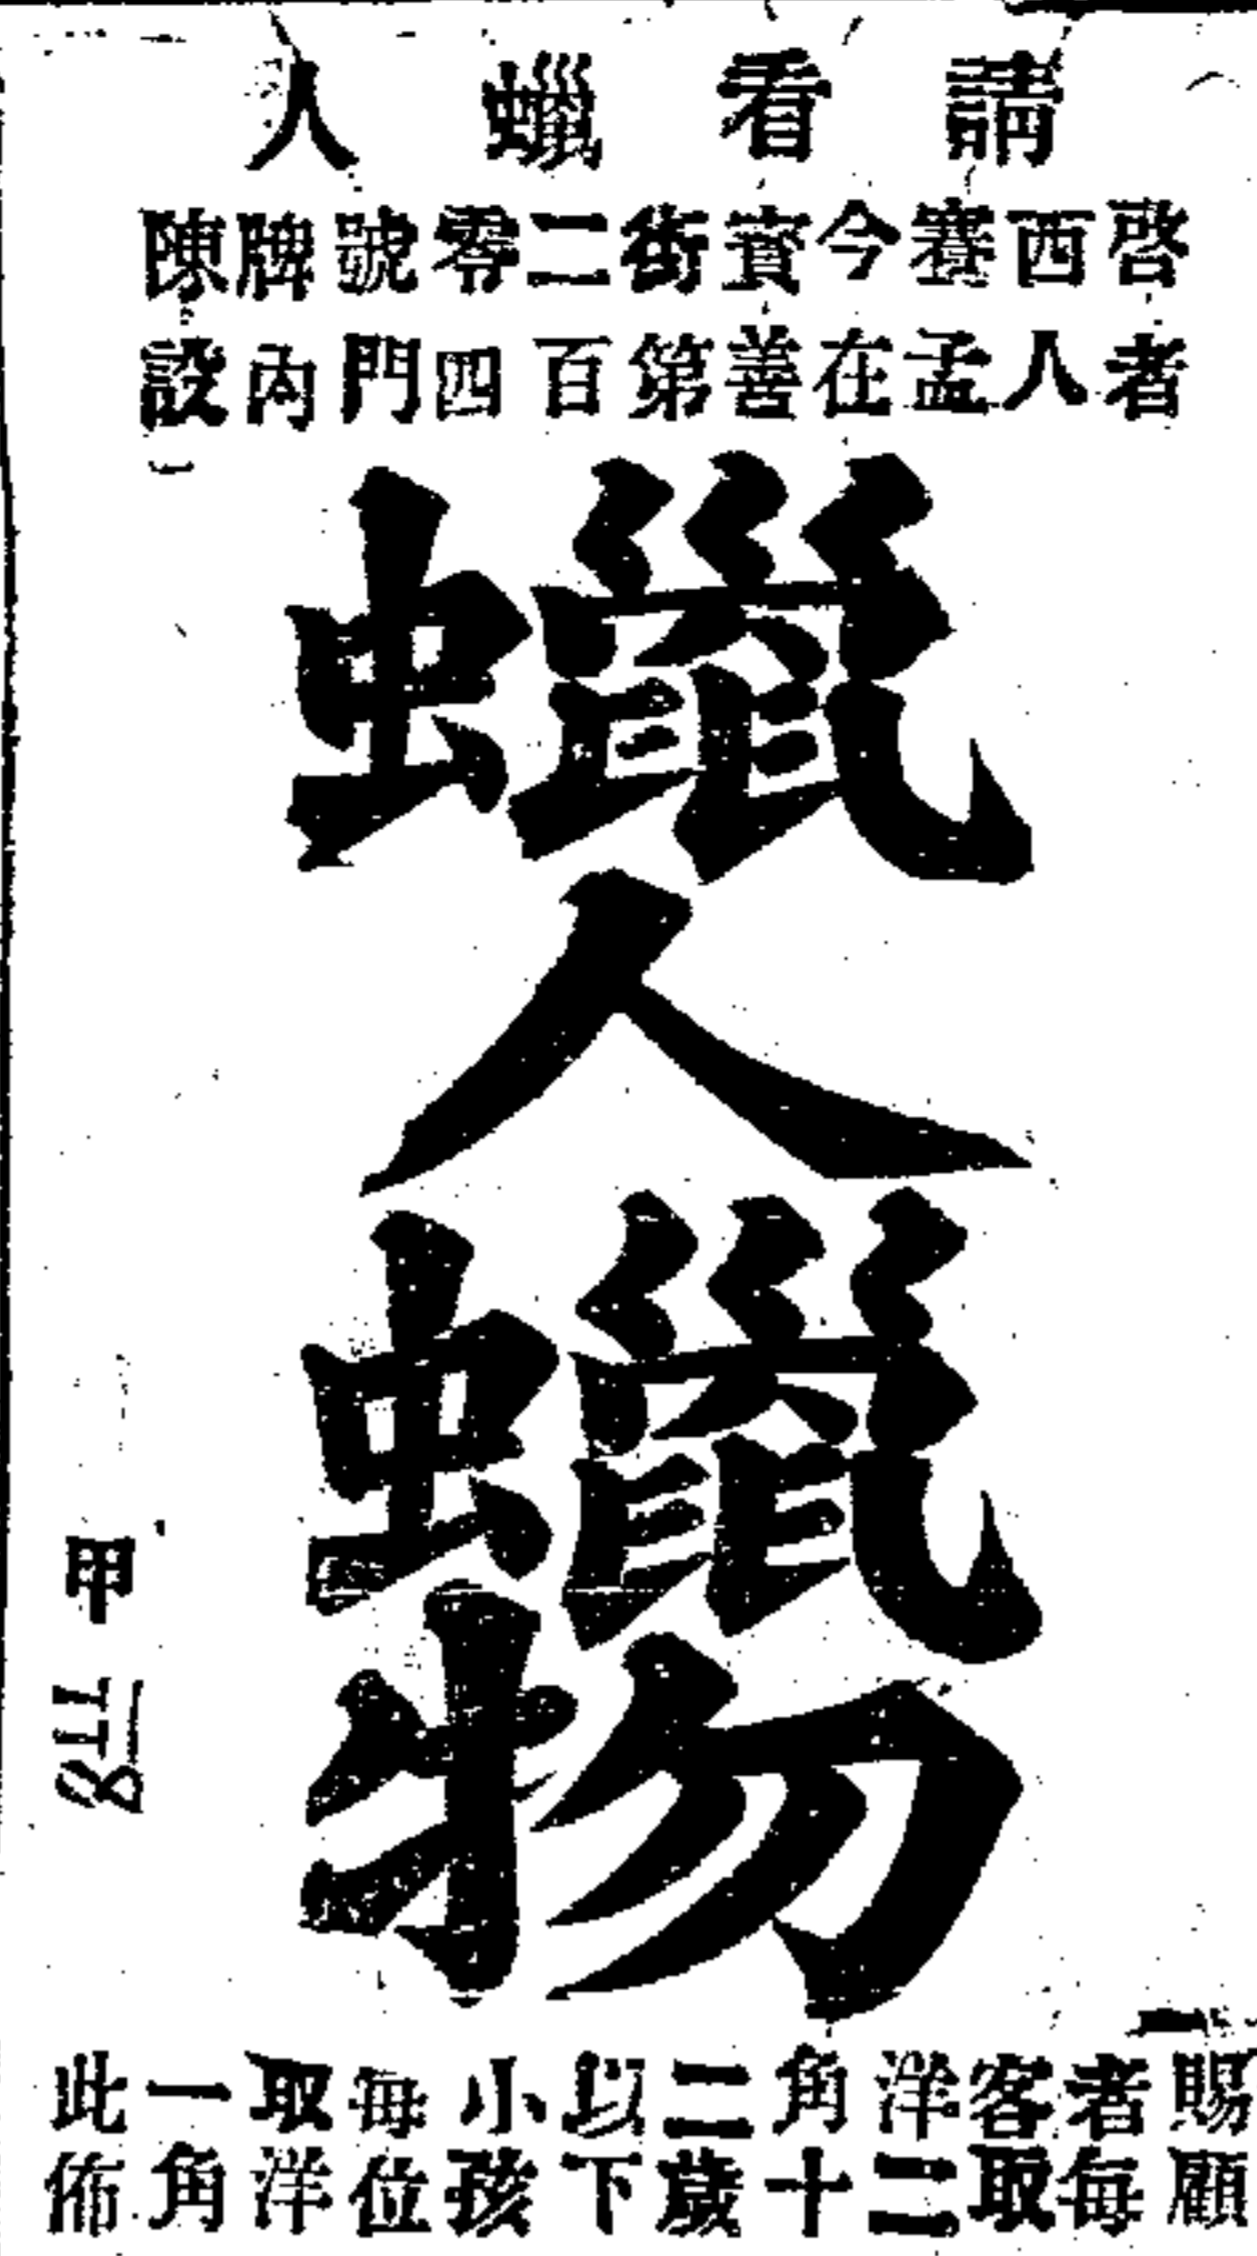 請看蠟人
啓者
西人
賽孟
今在
寶善
街第
二百
零四
號門
牌內
陳設
蠟人蠟物
甲
賜顧
者每
客取
洋二
角十
二歲
以下
小孩
每位
取洋
一角
此佈